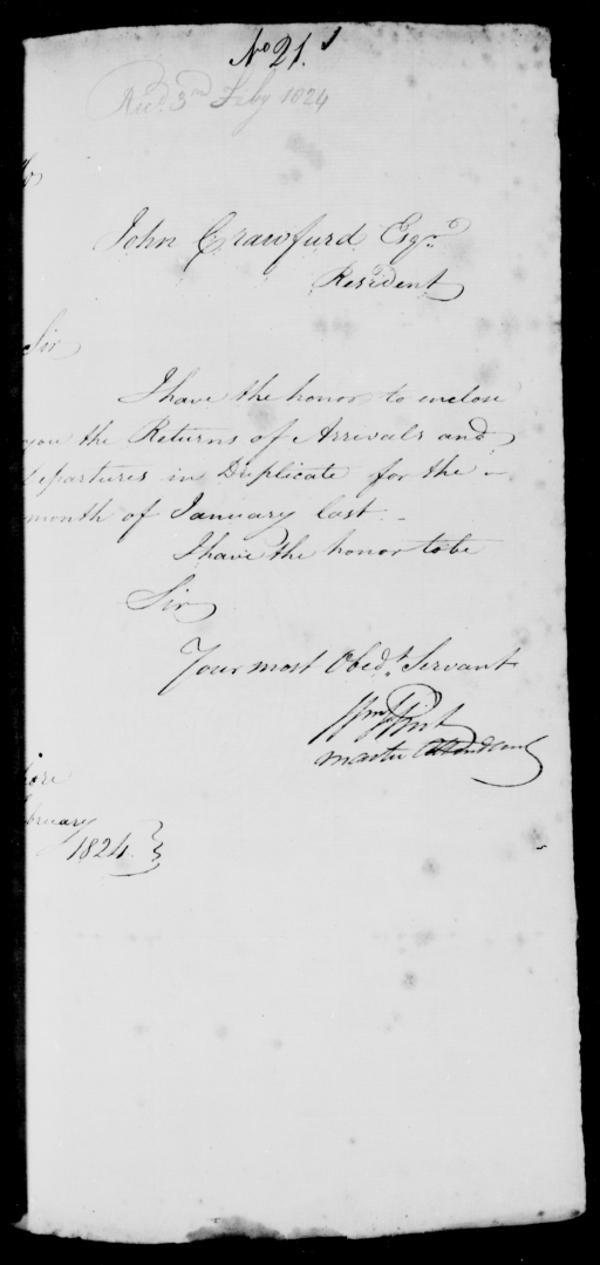 No 21.
Recd. 3rd Feby 1824
To
John Crawfurd Esqr.
Resident
Sir
I have the honor to enclose
you the Returns of Arrivals and
Departures in Duplicate for the
month of January last.
I have the honor to be
Sir
Your most Obedt. Servant
Wm Flint
Master Attendant
ore
bruary
1824.